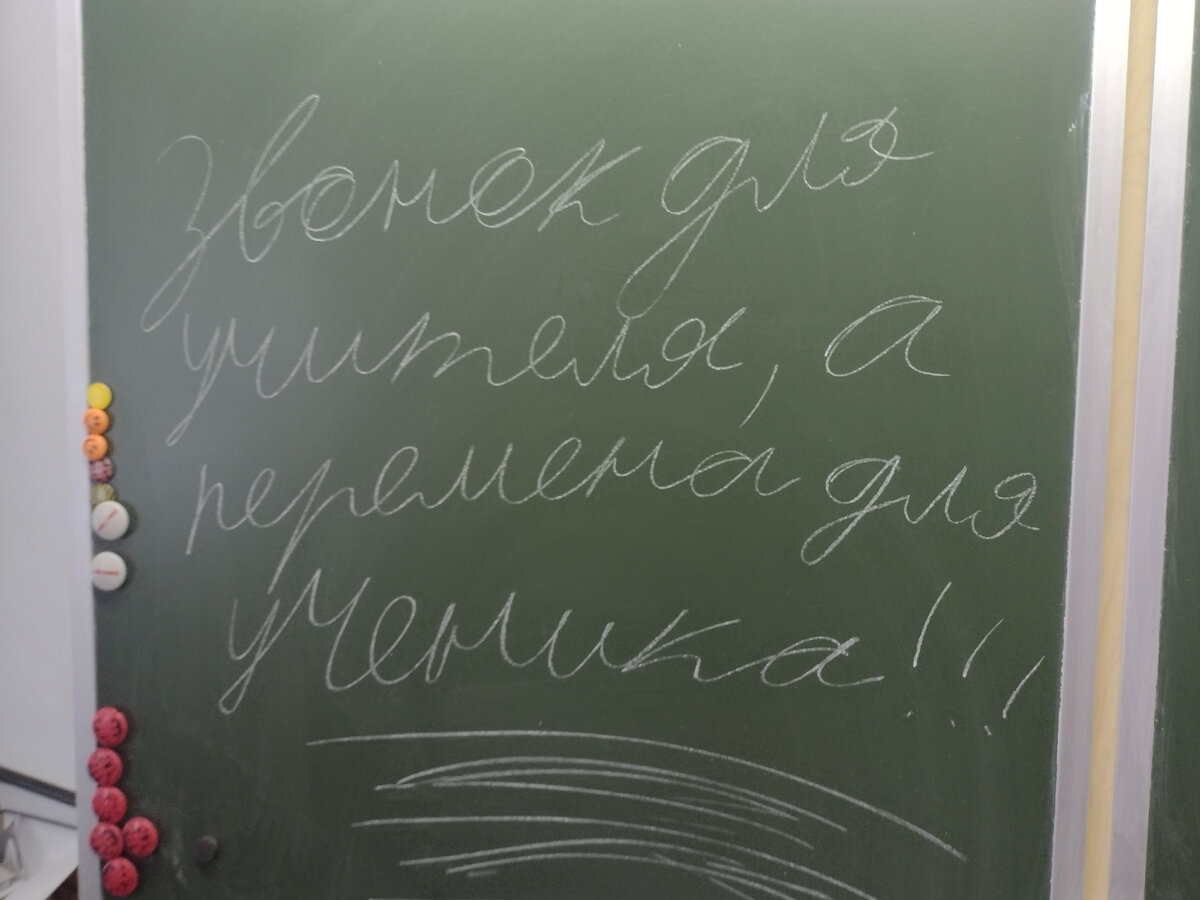 Звонок для
учителя, а
перемена для
ученика!!!